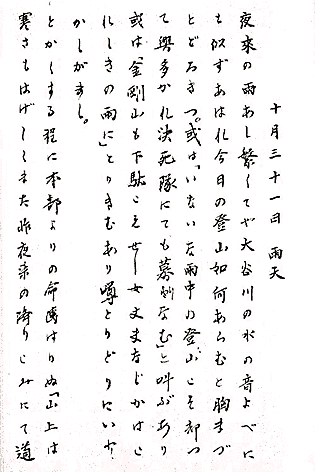 十月三十一日　雨天
夜来の雨あし繁くてや大谷川の水の音よべに
も似ずあはれ今日の登山如何あらむと胸まづ
とどろきつ。或は「いないな雨中の登山こそ却つ
て興多かれ決死隊にても募らなむ」と叫ぶあり
或は金剛山も下駄こえせし女丈夫などかはこ
れしきの雨に」とりきむあり噂とりどりにいと
かしがまし。
とかくする程に本部よりの命傳はりぬ「山上は
寒さもはげしくまた昨夜来の降りこみにて道